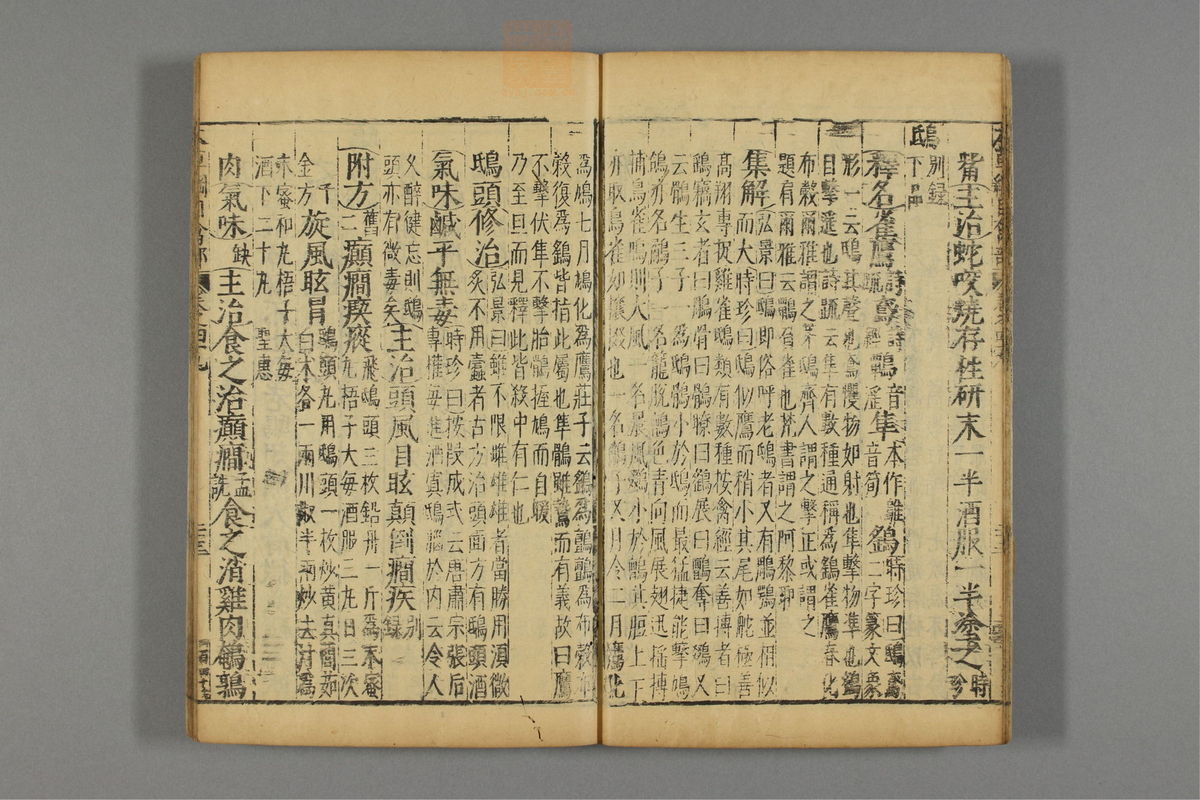 觜主治蛇咬燒存性研末一半酒服一半塗之時珍
鴟別錄下品
釋名雀鷹詩疏 鳶詩經 鷣音淫 隼本作鵻音筍 鷂時珍曰鴟鳶二字篆文象
形一云鴟其聲也鳶攫物如射也隼擊物準也鷂
目擊遥也詩疏云隼有數種通稱爲鷂雀鷹春化
布穀爾雅謂之茅鴟齊人謂之擊正或謂之
題肩爾雅云鷣負雀也梵書謂之阿黎耶
集解弘景曰鴟即俗呼老鴟者又有鵰鶚並相似
而大時珍曰鴟似鷹而稍小其尾如舵極善
高翔專捉雞雀鴟類有數種按禽經云善摶者曰
鷂竊玄者曰鵰骨曰鶻瞭曰鷂展曰鸇奪曰鵽又
云鶻生三子一爲鴟鶻小於鴟而最猛捷能擊鳩
鴿亦名鷸子一名籠脱鸇色青向風展翅迅搖搏
捕鳥雀鳴則大風一名晨風鷂小於鸇其脰上下
亦取鳥雀如攘掇也一名鷸子又月令二月鷹化
爲鳩七月鳩化爲鷹莊子云鷂爲鸇鸇爲布穀布
穀復爲鷂皆指此屬也隼鶻雖鷙而有義故曰鷹
不擊伏隼不擊胎鶻握鳩而自暖
乃至旦而見釋此皆殺中有仁也
鴟頭修治弘景曰雖不限雌雄雄者當勝用須微
炙不用蠹者古方治頭面方有鴟頭酒
氣味鹹平無毒時珍曰按段成式云唐肅宗張后
專權每進酒寘鴟腦於内云令人
久醉健忘則鴟
頭亦有微毒矣主治頭風目眩顛倒癇疾別錄
附方舊二癲癇瘈瘲飛鴟頭三枚鉛丹一斤爲末蜜
丸梧子大每酒服三丸日三次
千金方旋風眩冒鴟頭丸用鴟頭一枚炒黄真䕡茹
白朮各一兩川椒半兩炒去汁爲
末蜜和丸梧子大每
酒下二十丸聖惠
肉氣味缺主治食之治癲癇孟詵食之消雞肉鵪鶉